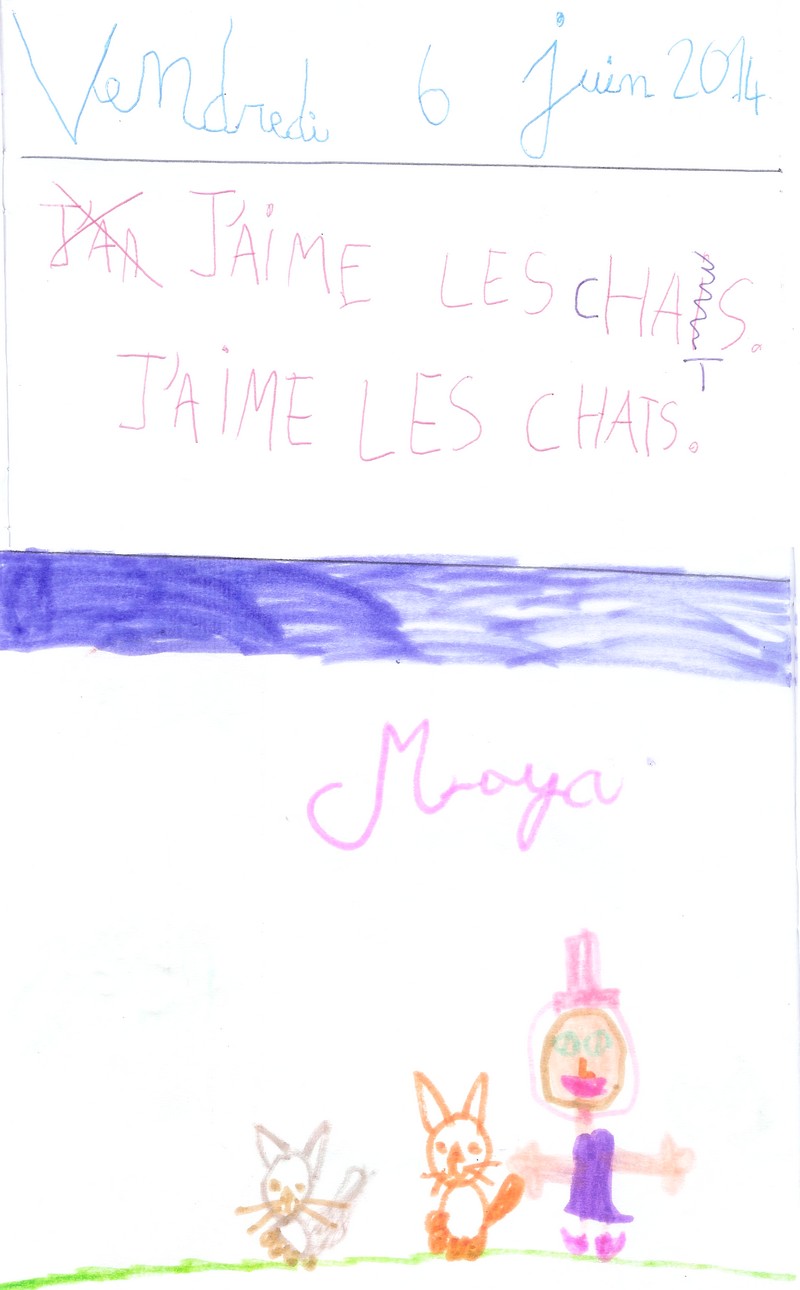 Vendredi 6 juin 2014
J'AIME LES CHATS.
J'AIME LES CHATS.
Maya